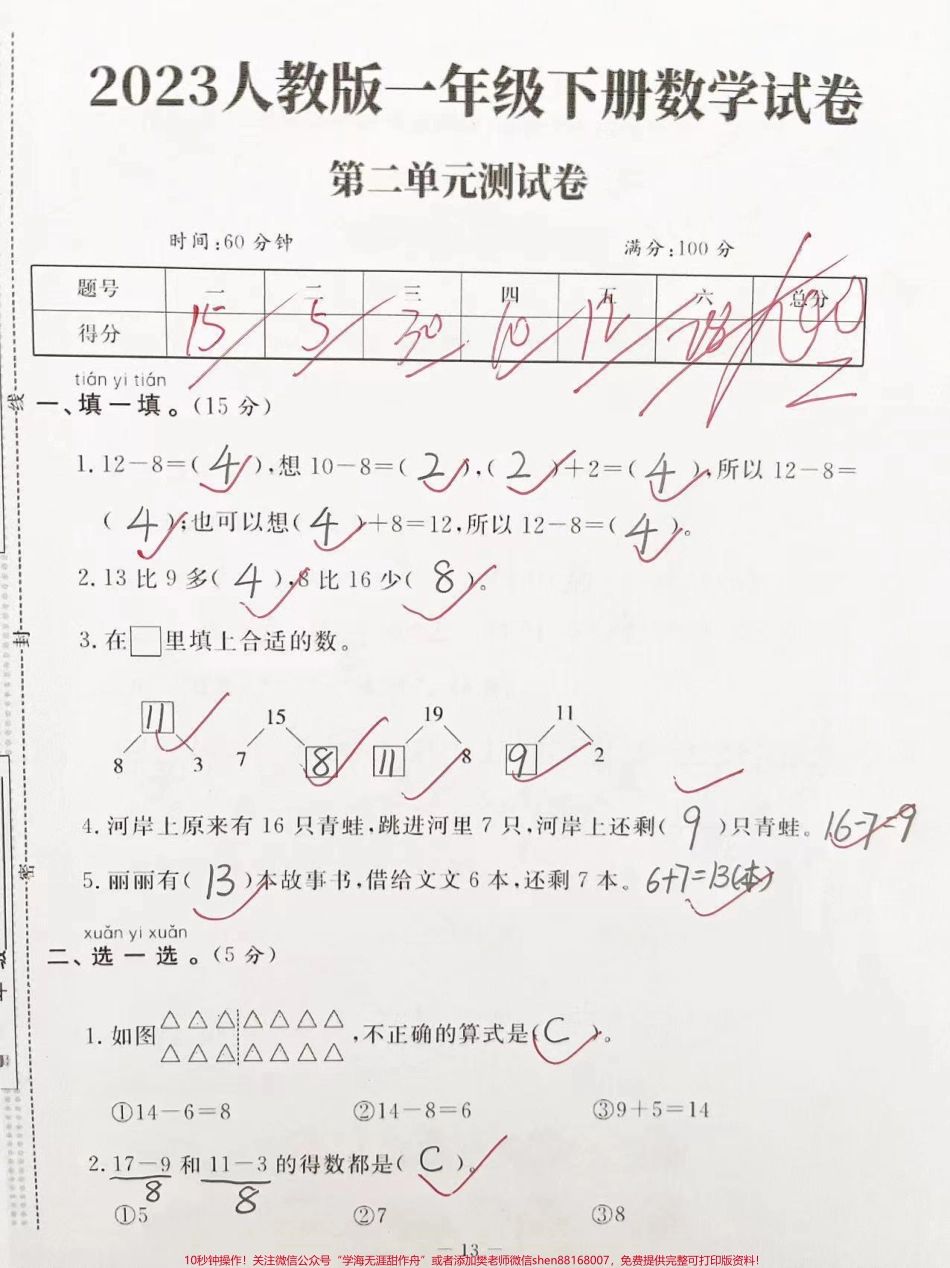 2023人教版一年级下册数学试卷
第二单元测试卷
时间:60分钟 满分:100分
题号 一 二 三 四 五 六 总分
得分 15 5 30 10 12 28 100
tián yi tián
一、填一填。(15分)
1. 12-8=( 4 ),想10-8=( 2 ),( 2 )+2=( 4 ),所以12-8=
( 4 );也可以想( 4 )+8=12,所以12-8=( 4 )。
2. 13比9多( 4 ),8比16少( 8 )。
3. 在□里填上合适的数。
11 15 19 11
8 3 7 8 11 8 9 2
4. 河岸上原来有16只青蛙,跳进河里7只,河岸上还剩( 9 )只青蛙。16-7=9
5. 丽丽有( 13 )本故事书,借给文文6本,还剩7本。6+7=13(本)
xuǎn yi xuǎn
二、选一选。(5分)
1. 如图△△△△△△△△△△△△△△,不正确的算式是( C )。
①14-6=8 ②14-8=6 ③9+5=14
2. 17-9和11-3的得数都是( C )。
8 8
①5 ②7 ③8
— 13 —
10秒钟操作!关注微信公众号“学海无涯甜作舟”或者添加樊老师微信shen88168007,免费提供完整可打印版资料!
线
封
密